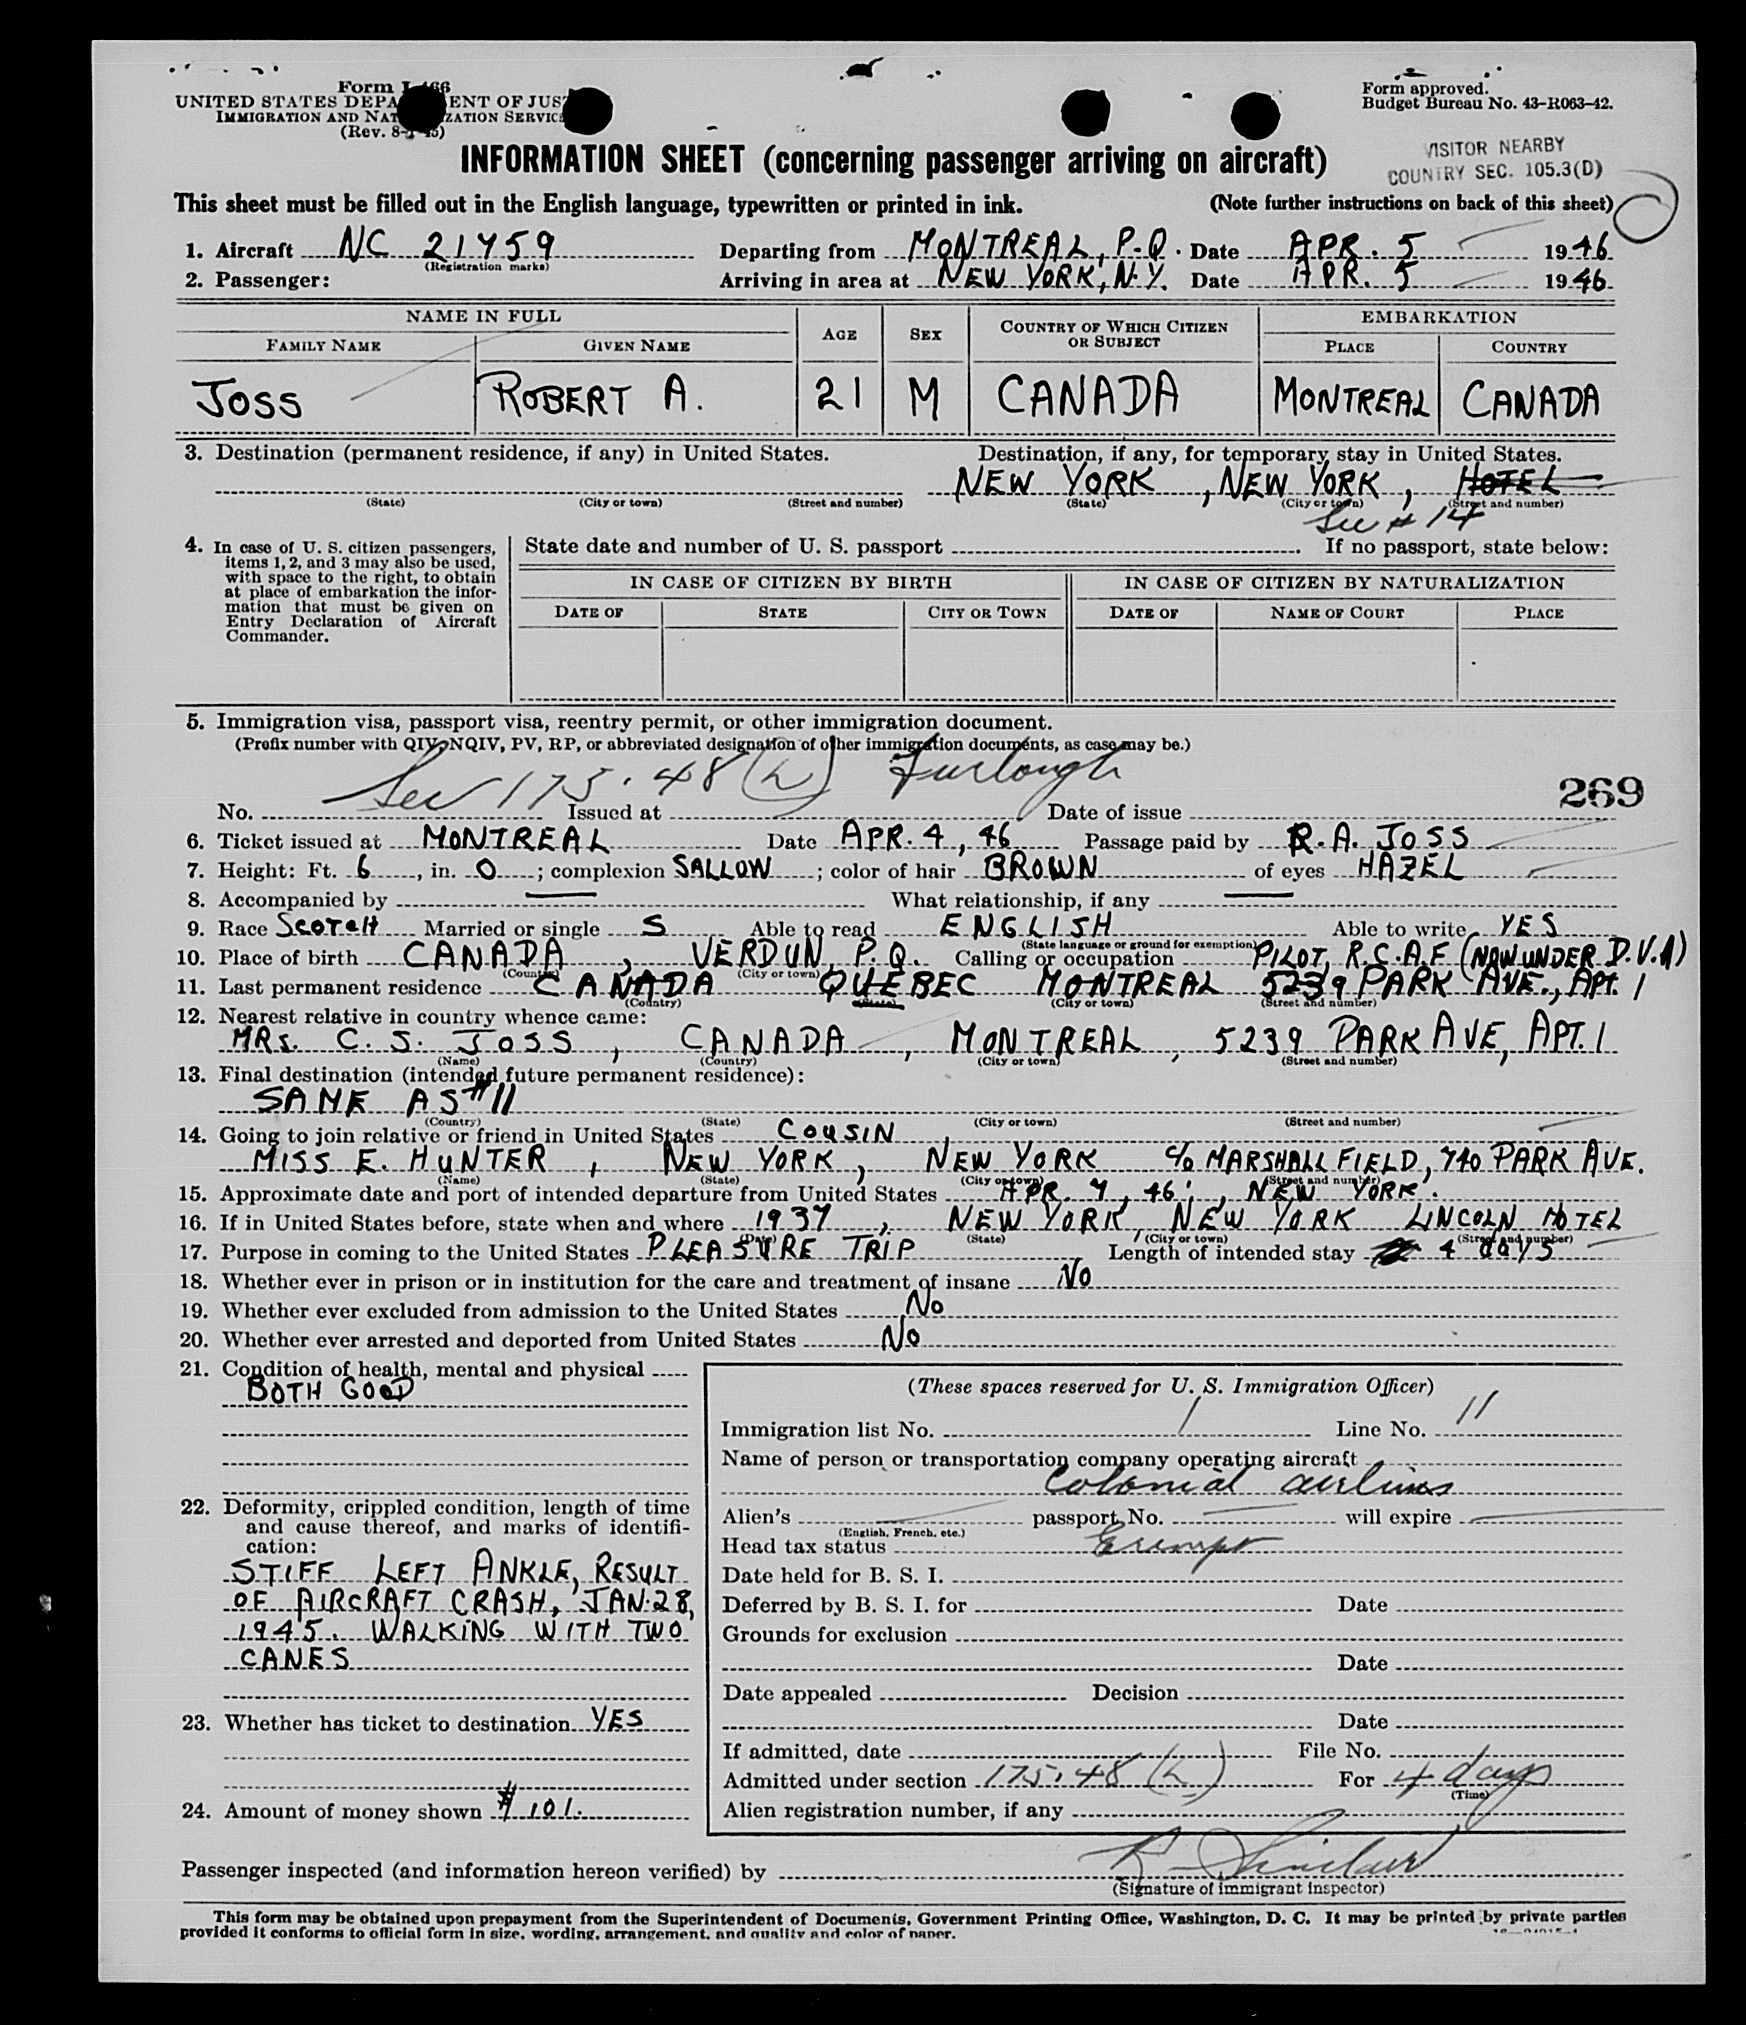 Form I-466
UNITED STATES DEPA ENT OF JUS
IMMIGRATION AND NAT ZATION SERVIC
(Rev. 8-1-45)
Form approved.
Budget Bureau No. 43-R063-42.
INFORMATION SHEET (concerning passenger arriving on aircraft)
VISITOR NEARBY
COUNTRY SEC. 105.3(D)
This sheet must be filled out in the English language, typewritten or printed in ink. (Note further instructions on back of this sheet)
1. Aircraft NC 21759 Departing from MONTREAL, P.Q. Date APR. 5 1946
(Registration marks)
2. Passenger: Arriving in area at NEW YORK, N.Y. Date APR. 5 1946
NAME IN FULL AGE SEX COUNTRY OF WHICH CITIZEN OR SUBJECT EMBARKATION
FAMILY NAME GIVEN NAME PLACE COUNTRY
JOSS ROBERT A. 21 M CANADA MONTREAL CANADA
3. Destination (permanent residence, if any) in United States. Destination, if any, for temporary stay in United States.
NEW YORK, NEW YORK, HOTEL
(State) (City or town) (Street and number) (State) (City or town) (Street and number)
See # 14
4. In case of U. S. citizen passengers, items 1, 2, and 3 may also be used, with space to the right, to obtain at place of embarkation the information that must be given on Entry Declaration of Aircraft Commander.
State date and number of U. S. passport . If no passport, state below:
IN CASE OF CITIZEN BY BIRTH IN CASE OF CITIZEN BY NATURALIZATION
DATE OF STATE CITY OR TOWN DATE OF NAME OF COURT PLACE
5. Immigration visa, passport visa, reentry permit, or other immigration document.
(Prefix number with QIV, NQIV, PV, RP, or abbreviated designation of other immigration documents, as case may be.)
Sec 175.48 (h) Furlough
269
No. Issued at Date of issue
6. Ticket issued at MONTREAL Date APR. 4, 46 Passage paid by R. A. JOSS
7. Height: Ft. 6, in. 0; complexion SALLOW; color of hair BROWN of eyes HAZEL
8. Accompanied by — What relationship, if any —
9. Race SCOTCH Married or single S Able to read ENGLISH Able to write YES
(State language or ground for exemption)
10. Place of birth CANADA, VERDUN, P.Q. Calling or occupation PILOT, R.C.A.F (NOW UNDER D.V.A)
(Country) (City or town)
11. Last permanent residence CANADA QUEBEC MONTREAL 5239 PARK AVE., APT. 1
(Country) (State) (City or town) (Street and number)
12. Nearest relative in country whence came:
MRS. C. S. JOSS, CANADA, MONTREAL, 5239 PARK AVE, APT. 1
(Name) (Country) (City or town) (Street and number)
13. Final destination (intended future permanent residence):
SAME AS #11
(Country) (State) (City or town) (Street and number)
14. Going to join relative or friend in United States COUSIN,
MISS E. HUNTER, NEW YORK, NEW YORK c/o MARSHALL FIELD, 740 PARK AVE.
(Name) (State) (City or town) (Street and number)
15. Approximate date and port of intended departure from United States APR. 7, 46, NEW YORK.
16. If in United States before, state when and where 1937, NEW YORK, NEW YORK LINCOLN HOTEL
(Date) (State) (City or town) (Street and number)
17. Purpose in coming to the United States PLEASURE TRIP Length of intended stay 4 days
18. Whether ever in prison or in institution for the care and treatment of insane NO
19. Whether ever excluded from admission to the United States NO
20. Whether ever arrested and deported from United States NO
21. Condition of health, mental and physical
BOTH GOOD
22. Deformity, crippled condition, length of time and cause thereof, and marks of identification:
STIFF LEFT ANKLE, RESULT
OF AIRCRAFT CRASH, JAN. 28,
1945. WALKING WITH TWO
CANES
23. Whether has ticket to destination YES
24. Amount of money shown $101.
(These spaces reserved for U. S. Immigration Officer)
Immigration list No. 1 Line No. 11
Name of person or transportation company operating aircraft
Colonial airlines
Alien's passport No. will expire
(English, French, etc.)
Head tax status Exempt
Date held for B. S. I.
Deferred by B. S. I. for Date
Grounds for exclusion
Date
Date appealed Decision
Date
If admitted, date File No.
Admitted under section 175.48 (h) For 4 days
(Time)
Alien registration number, if any
Passenger inspected (and information hereon verified) by R Sinclair
(Signature of immigrant inspector)
This form may be obtained upon prepayment from the Superintendent of Documents, Government Printing Office, Washington, D. C. It may be printed by private parties
provided it conforms to official form in size, wording, arrangement, and quality and color of paper.